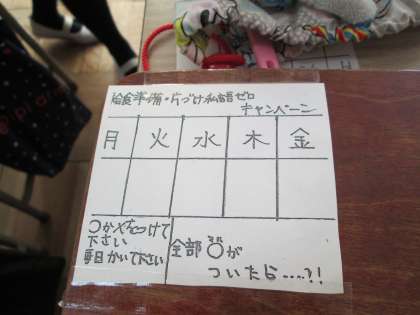 給食準備・片づけ私語ゼロ
キャンペーン
月 火 水 木 金
〇か×をつけて
下さい
毎日かいて下さい
全部〇が
ついたら....?!